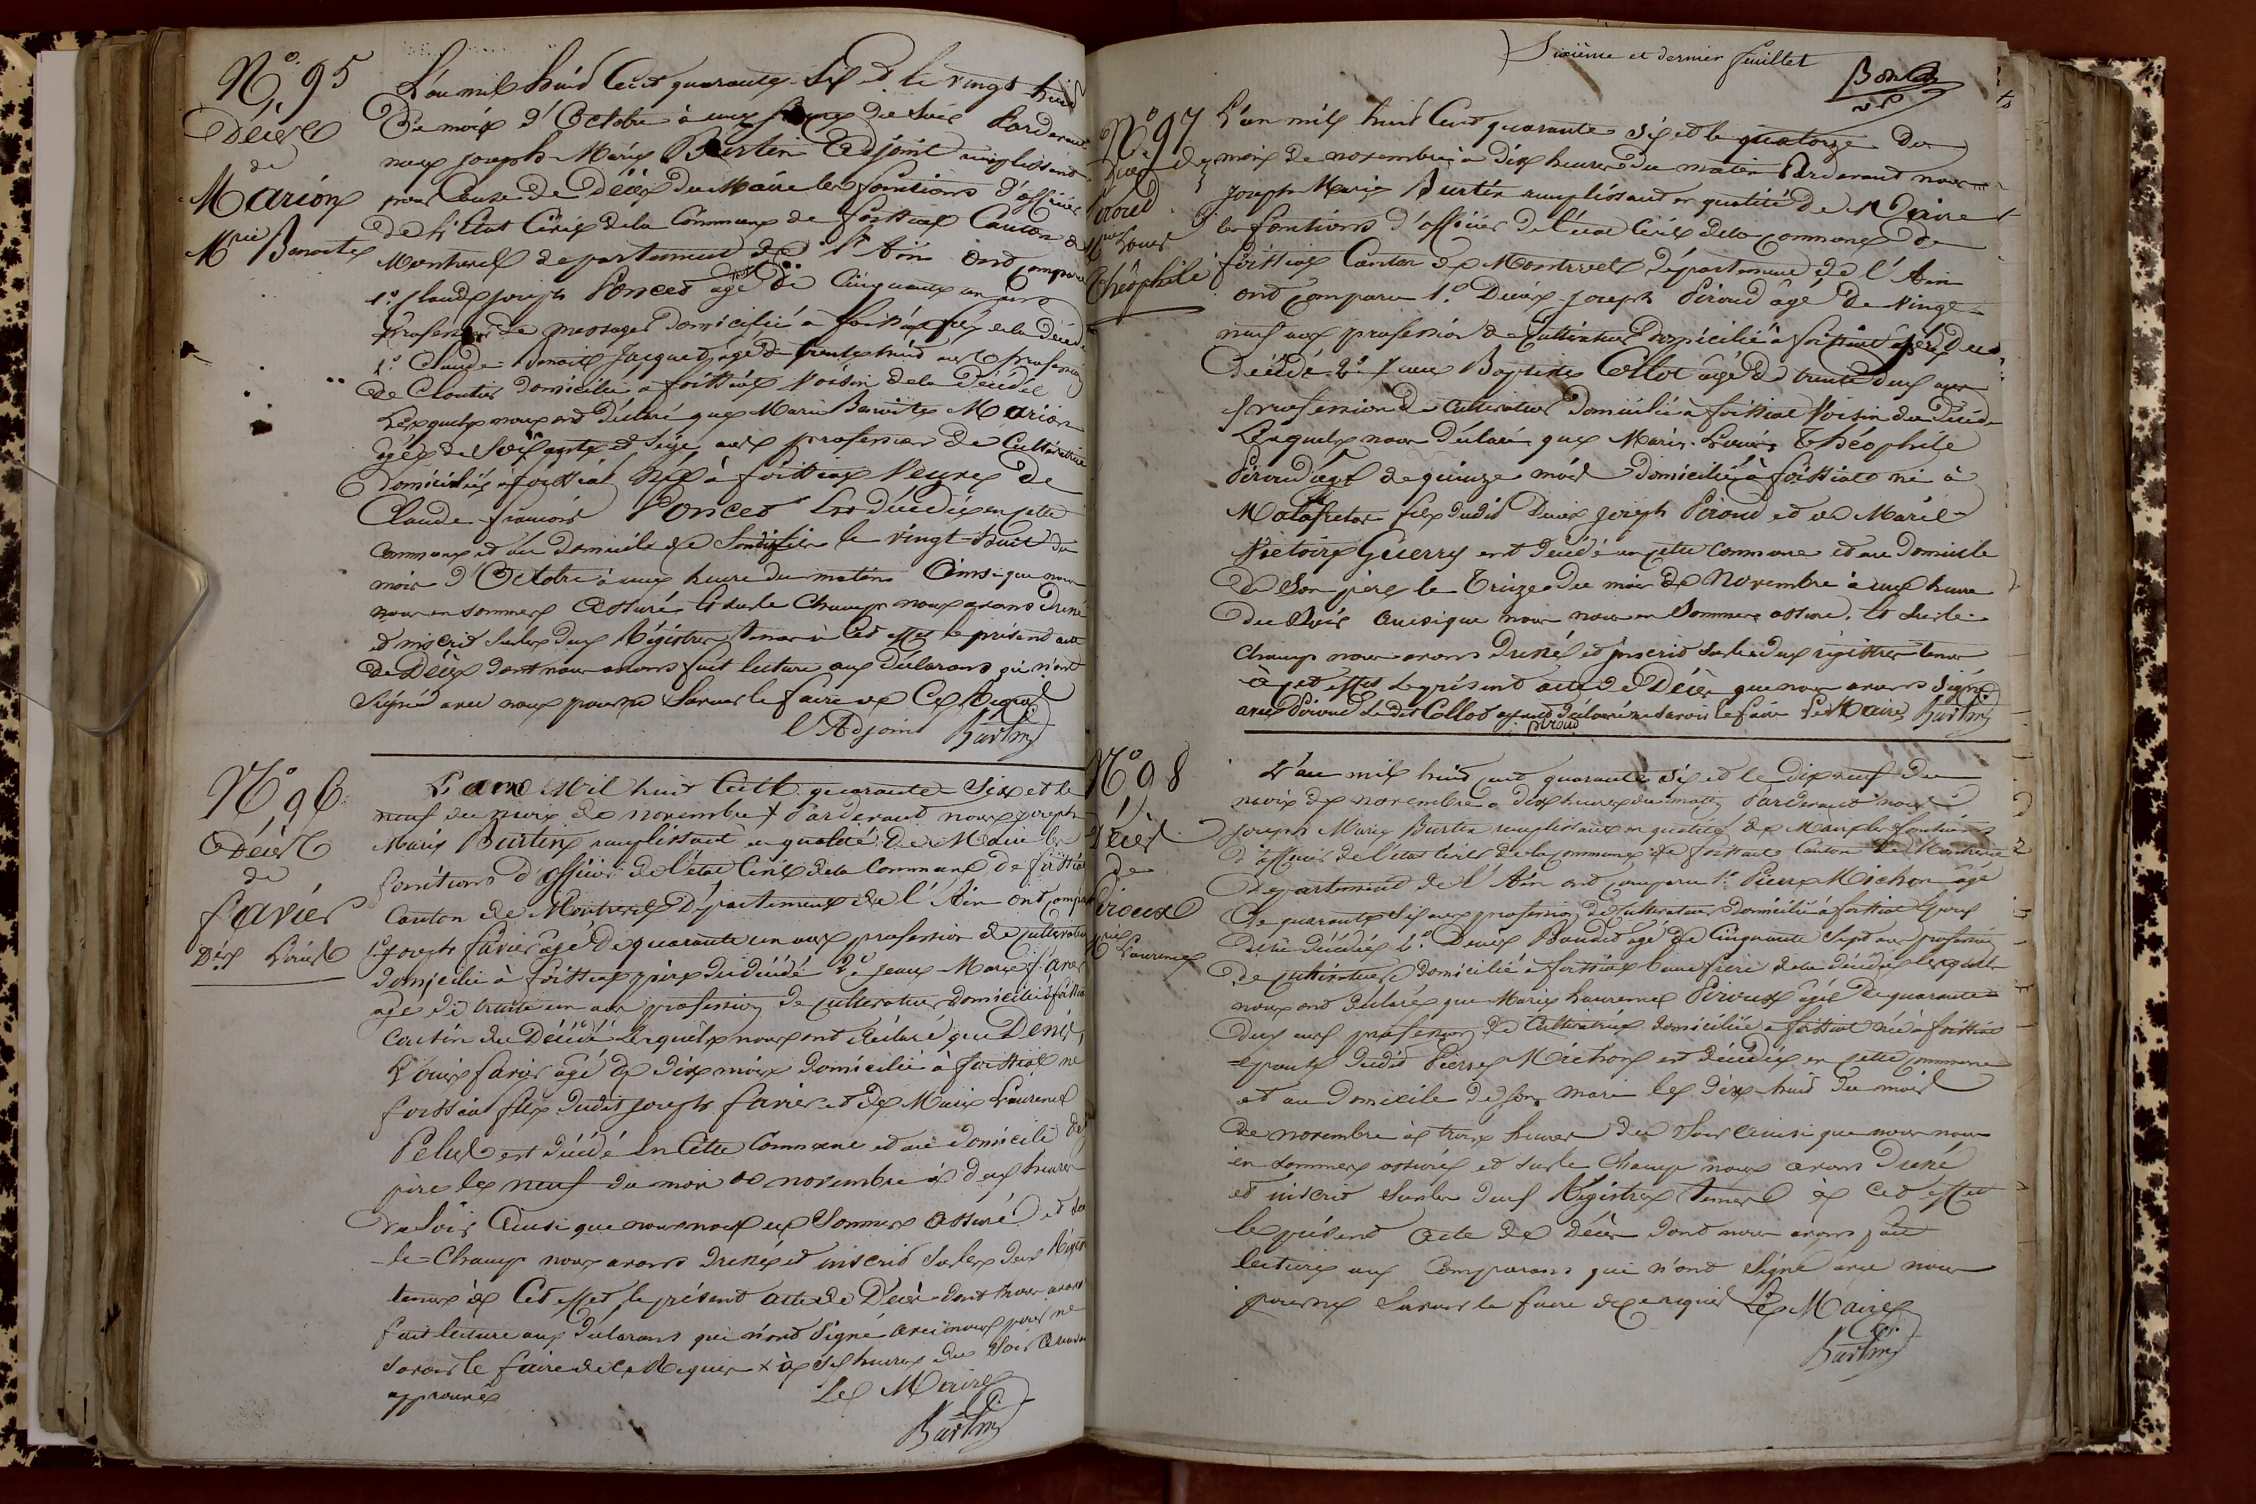 N.o 95
Décès
de
Marion
Mrie Benoite
L'an mil huit Cent quarante Six et le vingt huit
du mois d'Octobre à cinq heures du Soir Pardevant
nous joseph Marie Burtin Adjoint remplissant
pour Cause de Décès du Maire les fonctions d'officier
de l'Etat Civil de la Commune de foissiat Canton de
Montrevel departement de l'Ain Ont Comparu
1.o Claude joseph Poncet agé de Cinquante un ans
Profession de messager domicilié à foissiat fils de la décédée
2.o Claude Benoit Jacquet agé de trente huit ans Profession
de Cloutier domicilié a foissiat Voisin de la décédée
Lesquels nous ont Déclaré que Marie Benoite Marion
agée de Soixante et Seize ans profession de Cultivatrice
Domiciliée à foissiat Née à foissiat Veuve de
Claude françois Poncet est décédée en cette
Commune et au domicile de Sondit fils le vingt huit du
mois d'Octobre à une heure du matin Ainsi que nous
nous en sommes Assuré Et sur le Champ nous avons Dressé
et inscrit Sur les deux Régistres Tenus à Cet effet le présent acte
de Décès dont nous avons fait lecture aux Déclarans qui n'ont
Signé avec nous pour ne Savoir le faire de Ce Requis
l'Adjoint Burtin
N.o 96
Décès
de
favier
Dis Louis
L'an Mil huit Cent quarante Six et le
neuf du mois de novembre + Pardevant nous joseph
Marie Burtin remplissant en qualité de Maire les
fonctions d'officier de l'état Civil de la Commune de foissiat
Canton de Montrevel Département de l'Ain ont comparu
1.o Joseph favier agé de quarante un ans profession de cultivateur
domicilié à foissiat père du décédé 2.o jean Marie favier
agé de trente un ans profession de cultivateur domicilié à foissiat
Cousin du Décédé Lesquels nous ont déclaré que Denis
Louis favier agé de dix mois domicilié à foissiat né
foissiat fils dudit joseph favier et de Marie Laurence
Pelus est décédé En Cette Commune et au domicile de
père le neuf du mois de novembre à deux heures
du Soir Ainsi que nous nous en Sommes Assuré et sur
le Champ nous avons dressé et inscrit Sur les deux Régistres
tenus à Cet effet le présent acte de Décès dont nous avons
fait lecture aux déclarans qui n'ont Signé avec nous pour ne
savoir le faire de Ce Requis + à six heures du Soir
approuvé
Le Maire
Burtin
Sixième et dernier feuillet
N.o 97
Piroud
Mrie Louis
Théophile
L'an mil huit Cent quarante Six et le quatorze du
mois de novembre à dix heures du matin Pardevant nous
Joseph Marie Burtin remplissant en qualité de Maire
les fonctions d'officier de l'état Civil de la Commune de
foissiat Canton de Montrevel département de l'Ain
ont Comparu 1.o Denis joseph Piroud agé de vingt
neuf ans profession de Cultivateur Domicilié à foissiat père du
Décédé 2.o Jean Baptiste Collot agé de trente deux ans
profession de Cultivateur Domicilié à foissiat Voisin du Décédé
Lesquels nous Déclaré que Marie Louis Théophile
Piroud agé de quinze mois domicilié à foissiat né à
Malafretaz fils dudit Denis joseph Piroud et de Marie
Victoire Guerry est decédé en cette Commune et au Domicile
de Son père le treize du mois de Novembre à une heure
du Soir Ainsi que nous nous en Sommes assuré. Et sur le
Champ nous avons Dressé et inscrit Sur les deux régistres tenus
à cet effet le présent acte de Décès que nous avons Signé
avec Piroud Ledit Collot ayant Déclaré ne Savoir le faire Le Maire Burtin
piroud
N.o 98
Décès
de
Piroux
Mrie Laurence
L'an mil huit cent quarante Six et le dix neuf du
mois de novembre à dix heures du matin Pardevant nous
Joseph Marie Burtin remplissant en qualité de Maire les fonctions
d'officier de l'état Civil de la Commune de foissiat Canton de Montrevel
Departement de l'Ain ont comparu 1.o Pierre Michon agé
de quarante Six ans profession de Cultivateur Domicilié à foissiat Epoux
de la décédée 2.o Denis Baudet agé de Cinquante Sept ans profession
de Cultivateur domicilié à foissiat beau frère de la décédée lesquels
nous ont déclaré que Marie Laurence Piroux agée de quarante
deux ans profession de Cultivatrice domiciliée à foissiat née à foissiat
épouse dudit Pierre Michon est décédée en cette Commune
et au Domicile de Son Mari le dix huit du mois
de novembre à trois heures du Soir Ainsi que nous nous
en Sommes assuré et sur le Champ nous avons Dressé
et inscrit Sur les deux Régistres Tenus à Cet effet
le présent Acte de Décès dont nous avons fait
lecture aux Comparans qui n'ont Signé avec nous
pour ne Savoir le faire de ce requis Le Maire
Burtin